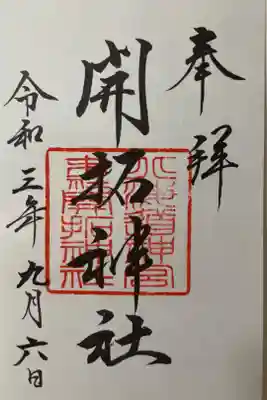 奉拝
開拓神社
北海道神宮
末開拓神社
令和三年九月六日